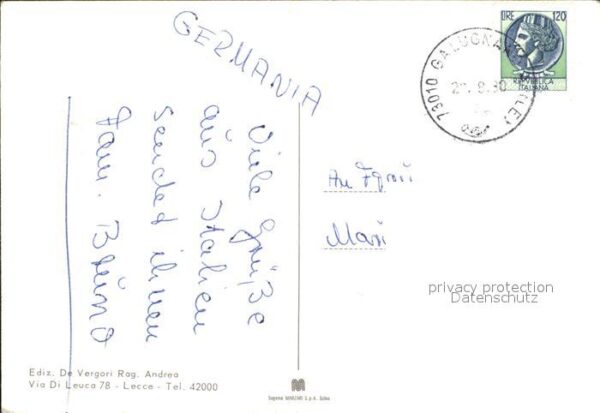 GERMANIA
Viele Grüße
aus Italien
sendet ihnen
Fam. Bruno
LIRE 120
REPVBBLICA
ITALIANA
73010 GALUGNANO (LE)
An Frau
Mari
privacy protection
Datenschutz
Ediz. De Vergori Rag. Andrea
Via Di Leuca 78 - Lecce - Tel. 42000